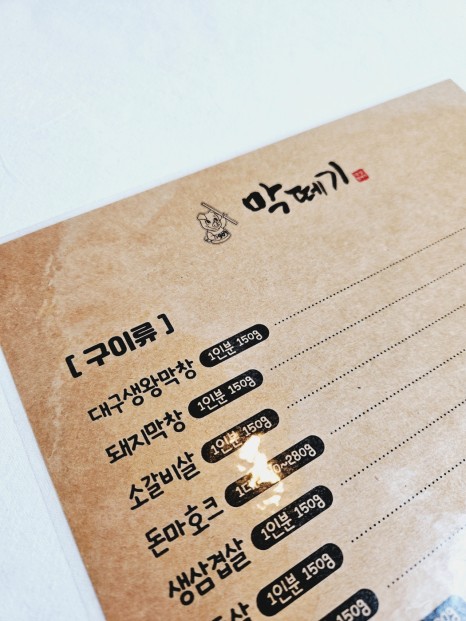 막떼기
[ 구이류 ]
대구생왕막창 1인분 150g
돼지막창 1인분 150g
소갈비살 1인분 150g
돈마호크 280g
생삼겹살 1인분 150g
1인분 150g
150g